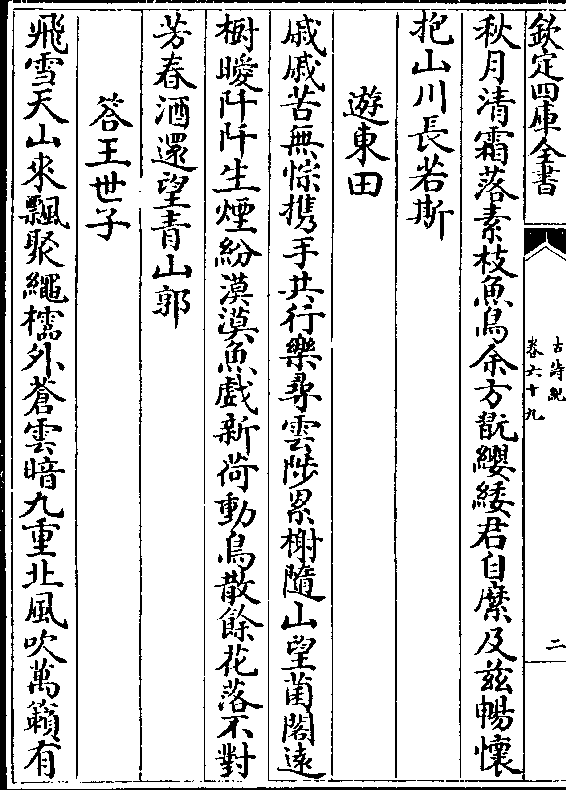 欽定四庫全書
古詩紀
卷六十九
二
秋月清霜落素枝魚鳥余方翫纓緌君自縻及茲暢懷
抱山川長若斯
遊東田
戚戚苦無悰携手共行樂尋雲陟累榭隨山望菌閣遠
樹曖阡阡生煙紛漠漠魚戲新荷動鳥散餘花落不對
芳春酒還望青山郭
答王世子
飛雪天山來飄聚繩櫺外蒼雲暗九重北風吹萬籟有